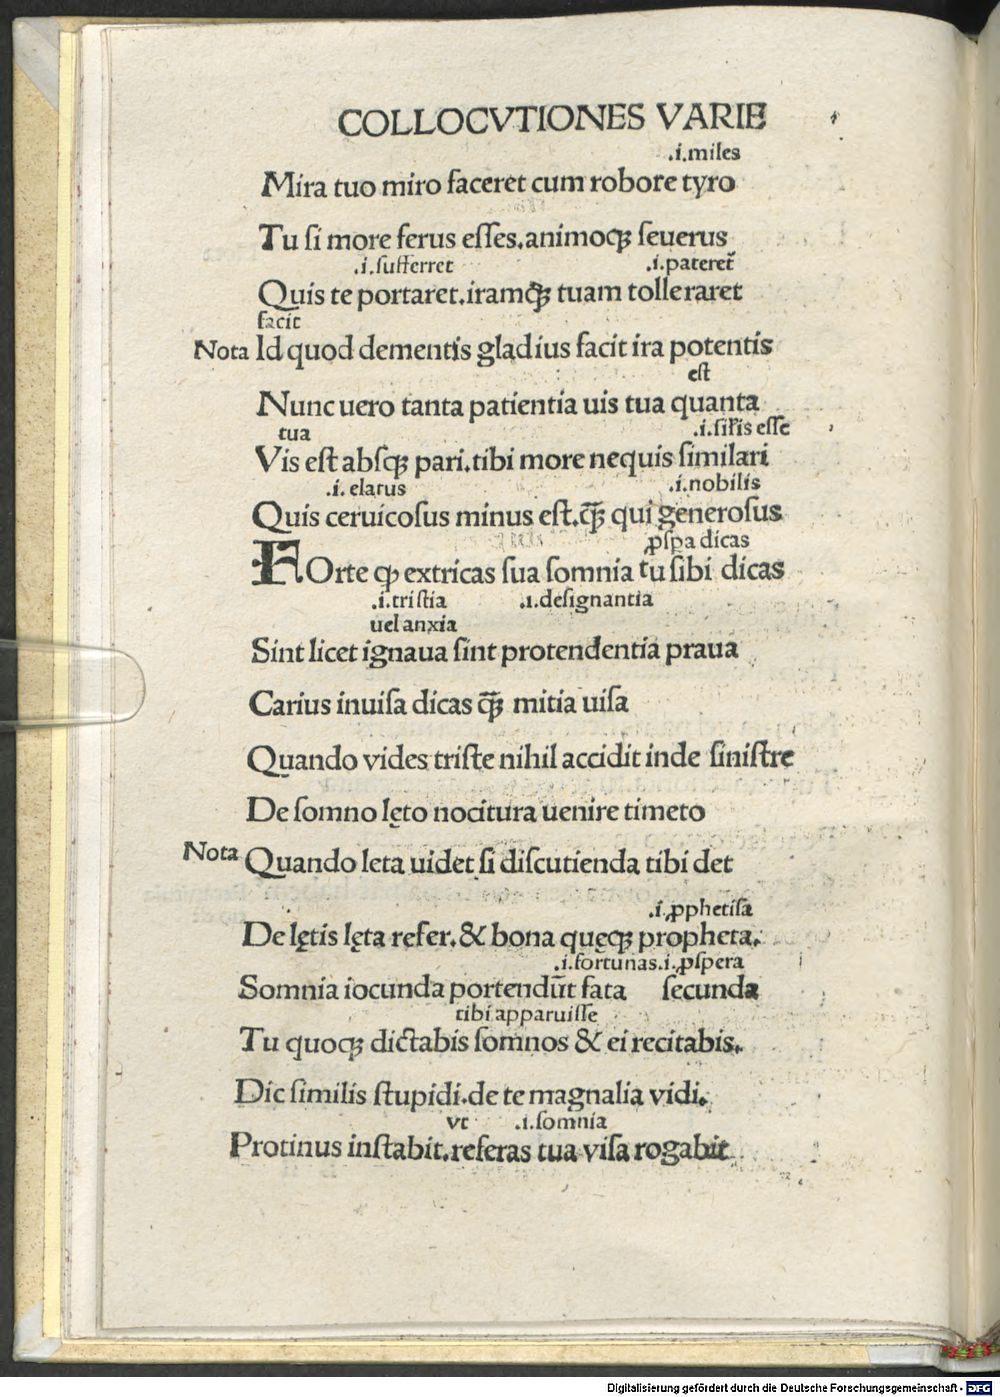 COLLOCVTIONES VARIE
.i.miles
Mira tuo miro faceret cum robore tyro
Tu si more ferus esses.animoqꝫ seuerus
.i.sufferret .i.pateret᷑
Quis te portaret.iramqꝫ tuam tolleraret
facit
Nota Id quod dementis gladius facit ira potentis
est
Nunc uero tanta patientia uis tua quanta
tua .i.sił̃is esse
Vis est absqꝫ pari.tibi more nequis similari
.i. elatus .i.nobilis
Quis ceruicosus minus est.q̃ꝫ qui generosus
ꝓspa dicas
FOrte ꝙ extricas sua somnia tu sibi dicas
.i.tristia .i.designantia
uel anxia
Sint licet ignaua sint protendentia praua
Carius inuisa dicas q̃ꝫ mitia uisa
Quando vides triste nihil accidit inde sinistre
De somno lęto nocitura uenire timeto
Nota Quando leta uidet si discutienda tibi det
.i.ꝓphetisa
De lętis lęta refer.& bona quęqꝫ propheta.
.i.fortunas.i.ꝓspera
Somnia iocunda portendūt fata secunda
tibi apparuisse
Tu quoqꝫ dictabis somnos & ei recitabis.
Dic similis stupidi.de te magnalia vidi.
vt .i.somnia
Protinus instabit.referas tua visa rogabit
Digitalisierung gefördert durch die Deutsche Forschungsgemeinschaft - DFG